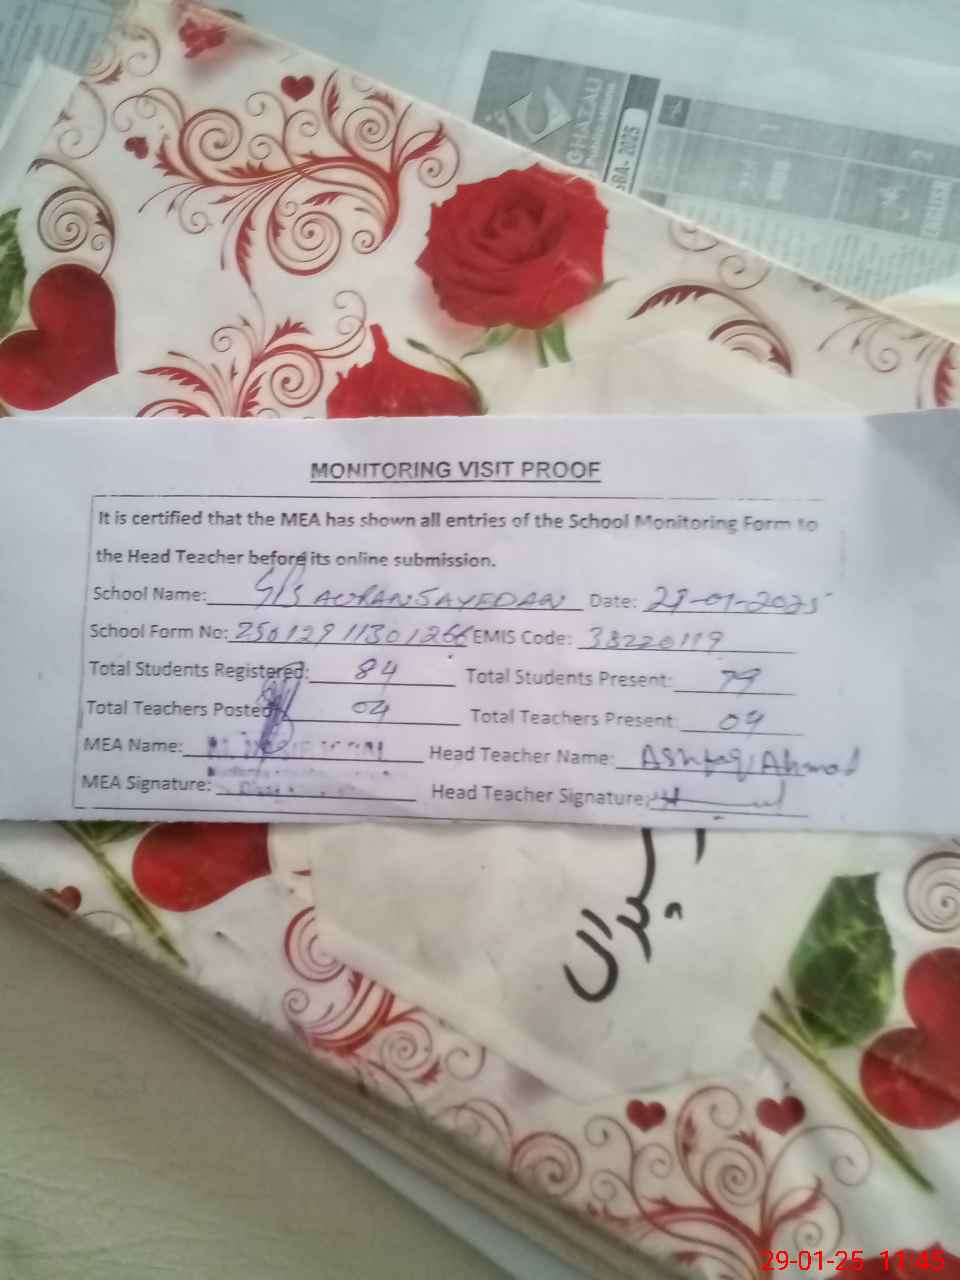 GHAZALI
SBA- 2025
ENGLISH
MONITORING VISIT PROOF
It is certified that the MEA has shown all entries of the School Monitoring Form to
the Head Teacher before its online submission.
School Name: G/S AURANSAYEDAN Date: 29-01-2025
School Form No: 25012911301266 EMIS Code: 38220119
Total Students Registered: 84 Total Students Present: 79
Total Teachers Posted: 04 Total Teachers Present: 04
MEA Name: Head Teacher Name: Ashfaq Ahmad
MEA Signature: Head Teacher Signature:
سیداں
29-01-25 11:45